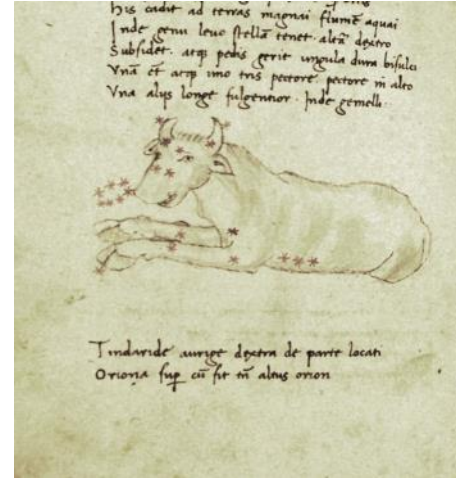 his cadit ad terras magnai flumē aquai
Inde genu levo stellā tenet. altā dextro
Subsidet. atq; pedis gerit ungula dura bisulci
Vnā et atq; imo tris pectore pectore in alto
Vna alijs longe fulgentior. Inde gemelli.
Tindaride aurige dextra de parte locati
Oriona sup cū sit tn̄ altus orion